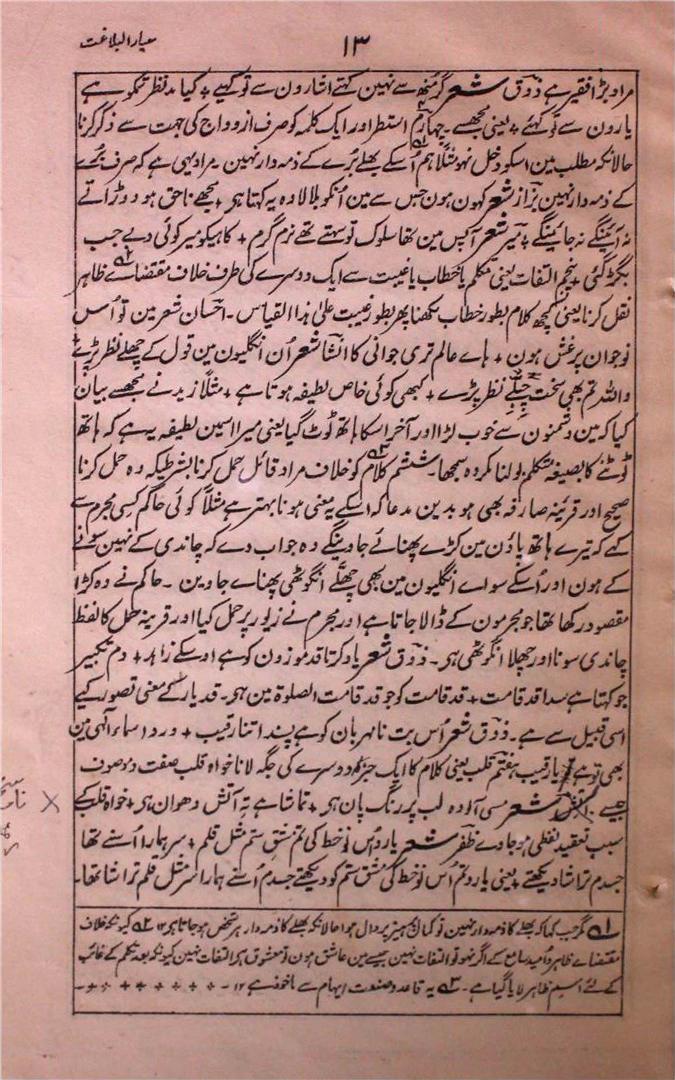 معیار البلاغت
۱۳
مراد بڑا فقیر ہے ذوق شعر گر منھ سے نہین کہتے اشارون سے تو کہیے + کیا مد نظر تمکو ہے
یارون سے تو کہئے + یعنی مجھسے ۔ چہارم استطراد ایک کلمہ کو صرف ازدواج کی جہت سے ذکر کرنا
حالانکہ مطلب مین اسکو دخل نہو مثلاً ہم اُسکے بھلے بُرے کے ذمہ دار نہین ۔ مراد یہی ہے کہ صرف بُرے
کے ذمہ دار نہین برازشعر کہون ہون جس سے مین اُنکو بلا لا وہ یہ کہتا ہر + مجھے ناحق ہو دوڑاتے
نہ آئینگے نہ جائینگے + میر شعر آپس مین تھا سلوک تو سہتے تھے نرم گرم + کاہیکو میر کوئی دبے جب
بگڑ گئی + پنجم التفات یعنی تکلم یا خطاب یا غیبت سے ایک دوسرے کی طرف خلاف مقتضاے ظاہر
نقل کرنا یعنی کچھ کلام بطور خطاب رکھنا پھر بطور غیبت علیٰ ہذا القیاس ۔ احسان شعر مین تو اُس
نوجوان پر غش ہون + ہاے عالم تری جوانی کا انشا شعر اُن انگلیون مین تول کے چھلے نظر پڑے
واللہ تم بھی سخت چھلے نظر پڑے + کبھی کوئی خاص لطیفہ ہوتا ہے + مثلاً زید نے مجھسے بیان
کیا کہ مین دشمنون سے خوب لڑا اور آخر اسکا ہاتھ ٹوٹ گیا یعنی میرا اسمین لطیفہ یہ ہے کہ ہاتھ
ٹوٹنے کا بصیغہ متکلم بولنا مکروہ سمجھا ۔ ششم کلام کو خلاف مراد قائل حمل کرنا بشرطیکہ وہ حمل کرنا
صحیح اور قرینہ صارفہ بھی ہو بدین مدعا کہ اسکے یہ معنی ہونا بہتر ہے مثلاً کوئی حاکم کسی مجرم سے
کہے کہ تیرے ہاتھ پاؤن مین کڑے پھنائے جاوینگے وہ جواب دے کہ چاندی کے نہین سونے
کے ہون اور اُسکے سواے انگلیون مین بھی چھلے انگوٹھی پھناے جاوین ۔ حاکم نے وہ کڑا
مقصود رکھا تھا جو مجرمون کے ڈالا جاتا ہے اور مجرم نے زیور پر حمل کیا اور قرینہ حمل کا لفظ
چاندی سونا اور چھلا انگوٹھی ہر ۔ ذوق شعر یاد کرتا قد موزون کو ہے اوسکے زاہد + دم تکبیر
جو کہتا ہے سدا قد قامت + قد قامت کو جو قد قامت الصلوۃ مین ہر ۔ قد یار کے معنی تصور کیے
اسی قبیل سے ہے ۔ ذوق شعر اُس بت نامہربان کو ہے پسند اتنا رقیب + ورد اسماء الٰہی مین
بھی تو ہے یا رقیب ہفتم قلب یعنی کلام کا ایک جز دوسرے کی جگہ لانا خواہ قلب صفت و موصوف
جیسے شعر مسی آلودہ لب پر رنگ پان ہر + تماشا ہے تہ آتش دھوان ہر + خواہ قلب کے
سبب تعقید لفظی ہو جاوے ظفر شعر یارو اُس نوخط کی تم مشق ستم مثل قلم + سر ہمارا اُسنے تھا
جسدم تراشا دیکھتے + یعنی یارو تم اُس نوخط کی مشق ستم کو دیکھتے جسدم اُسنے ہمارا سر مثل قلم تراشا تھا ۔
۱ے مگر جب کہا کہ بھلے کا ذمہ دار نہین تو کمال پرہیز پر دال ہوا حالانکہ بھلے کا ذمہ دار ہر شخص ہو جاتا ہر ۱۲ ۲ے کیونکہ خلاف
مقتضاے ظاہر و اُمید سامع کے اگر نہو تو التفات نہین جیسے مین عاشق ہون تو معشوق ہر التفات نہین کیونکہ بعد تکلم کے غائب
کے لئے اسم ظاہر لایا گیا ہے ۔ ۳ے یہ قاعدہ صنعت ایہام سے ماخوذ ہے ۱۲ -